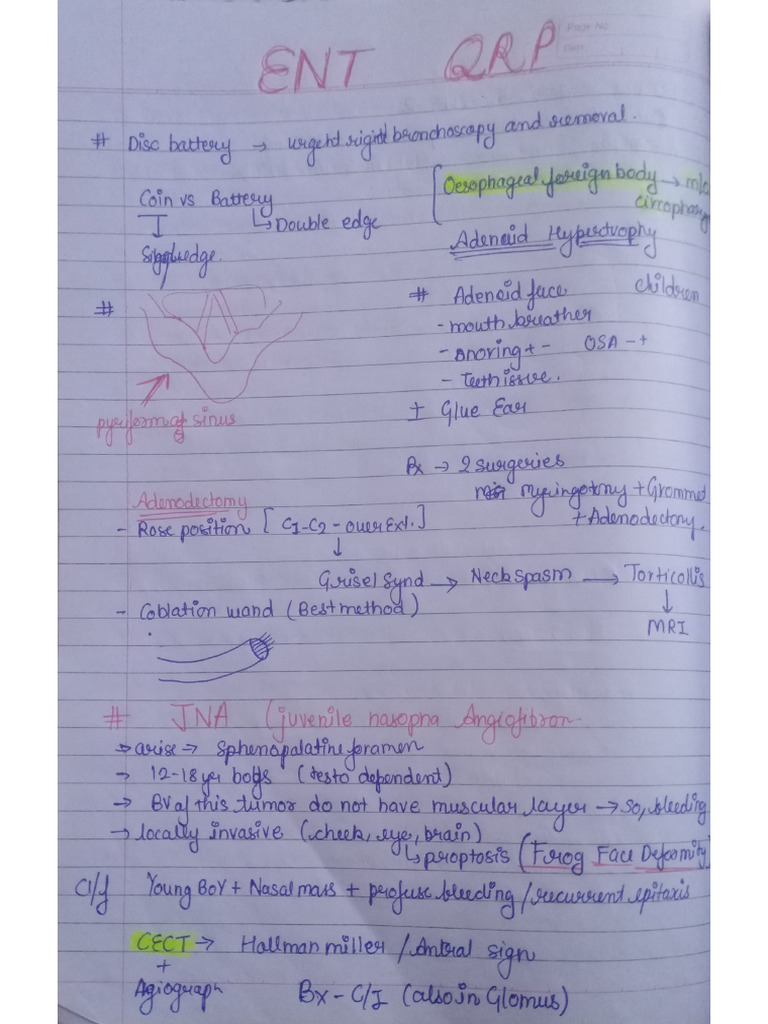 Page No.
ENT QRP
# Disc battery → urgent rigid bronchoscopy and removal.
Coin vs Battery
↳ Double edge
Single edge.
Oesophageal foreign body → m/c
Adenoid Hypertrophy
# Adenoid face children
- mouth breather
- snoring + - OSA - +
- Teeth issue.
± Glue Ear
#
pyriform of sinus
Rx → 2 surgeries
Myringotomy + Grommet
+ Adenodectony.
Adenodectomy
- Rose position [C1-C2 - over Ext.]
↓
Grisel Synd → Neck spasm → Torticollis
↓
MRI
- Coblation wand (Best method)
# JNA (juvenile nasopha Angiofibron
→ arise → Sphenopalatine foramen
→ 12-18 yr boys (testo dependent)
→ BV of this tumor do not have muscular layer → so, bleeding
→ locally invasive (cheek, eye, brain)
↳ proptosis (Frog Face Deformity)
C/f Young Boy + Nasal mass + profuse bleeding / recurrent epitaxis
CECT → Hallman miller / Antral sign
+
Agiograph Bx - C/I (also in Glomus)